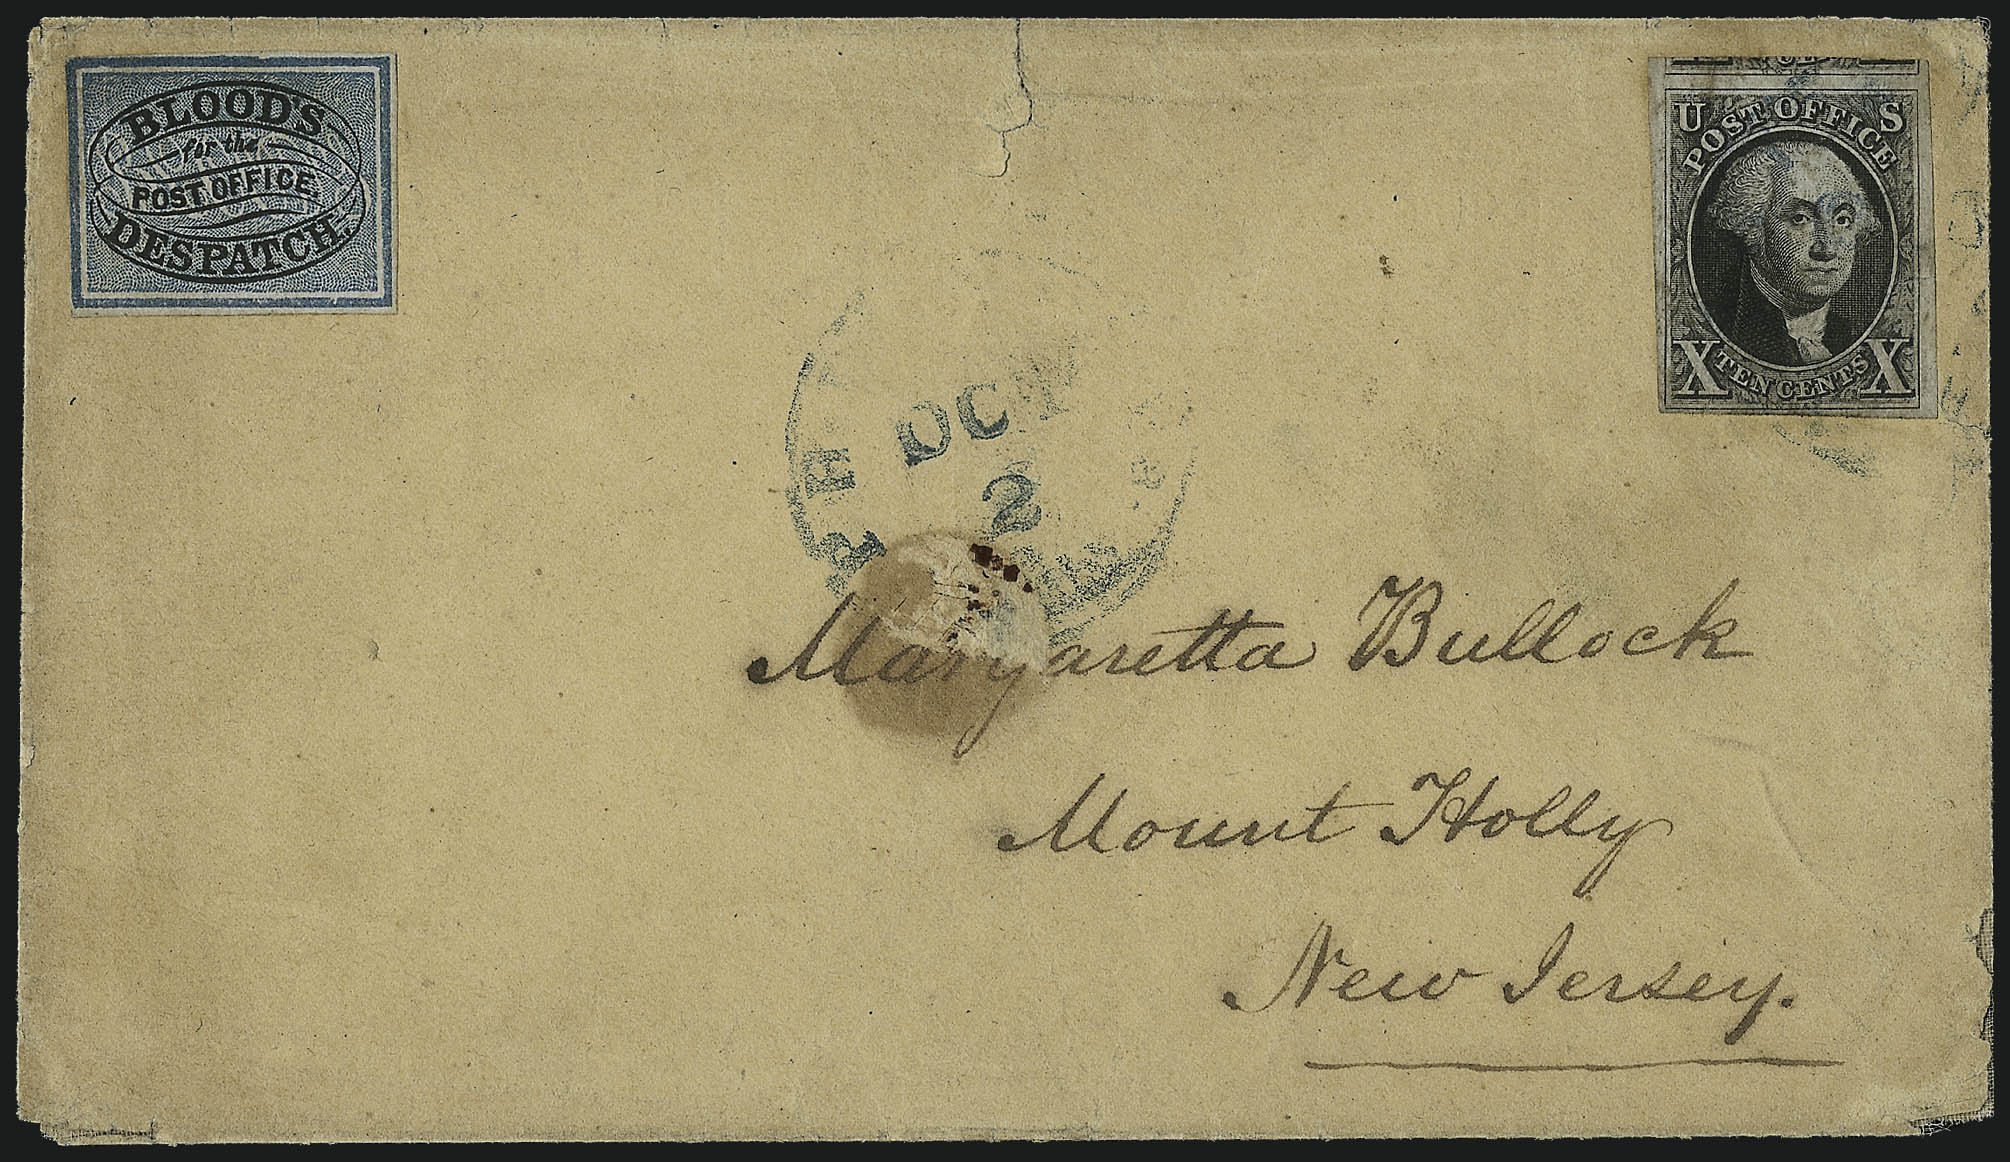 BLOOD'S
for the
POST OFFICE
DESPATCH.
U S
POST OFFICE
X TEN CENTS X
OCT
2
Margaretta Bullock
Mount Holly
New Jersey.